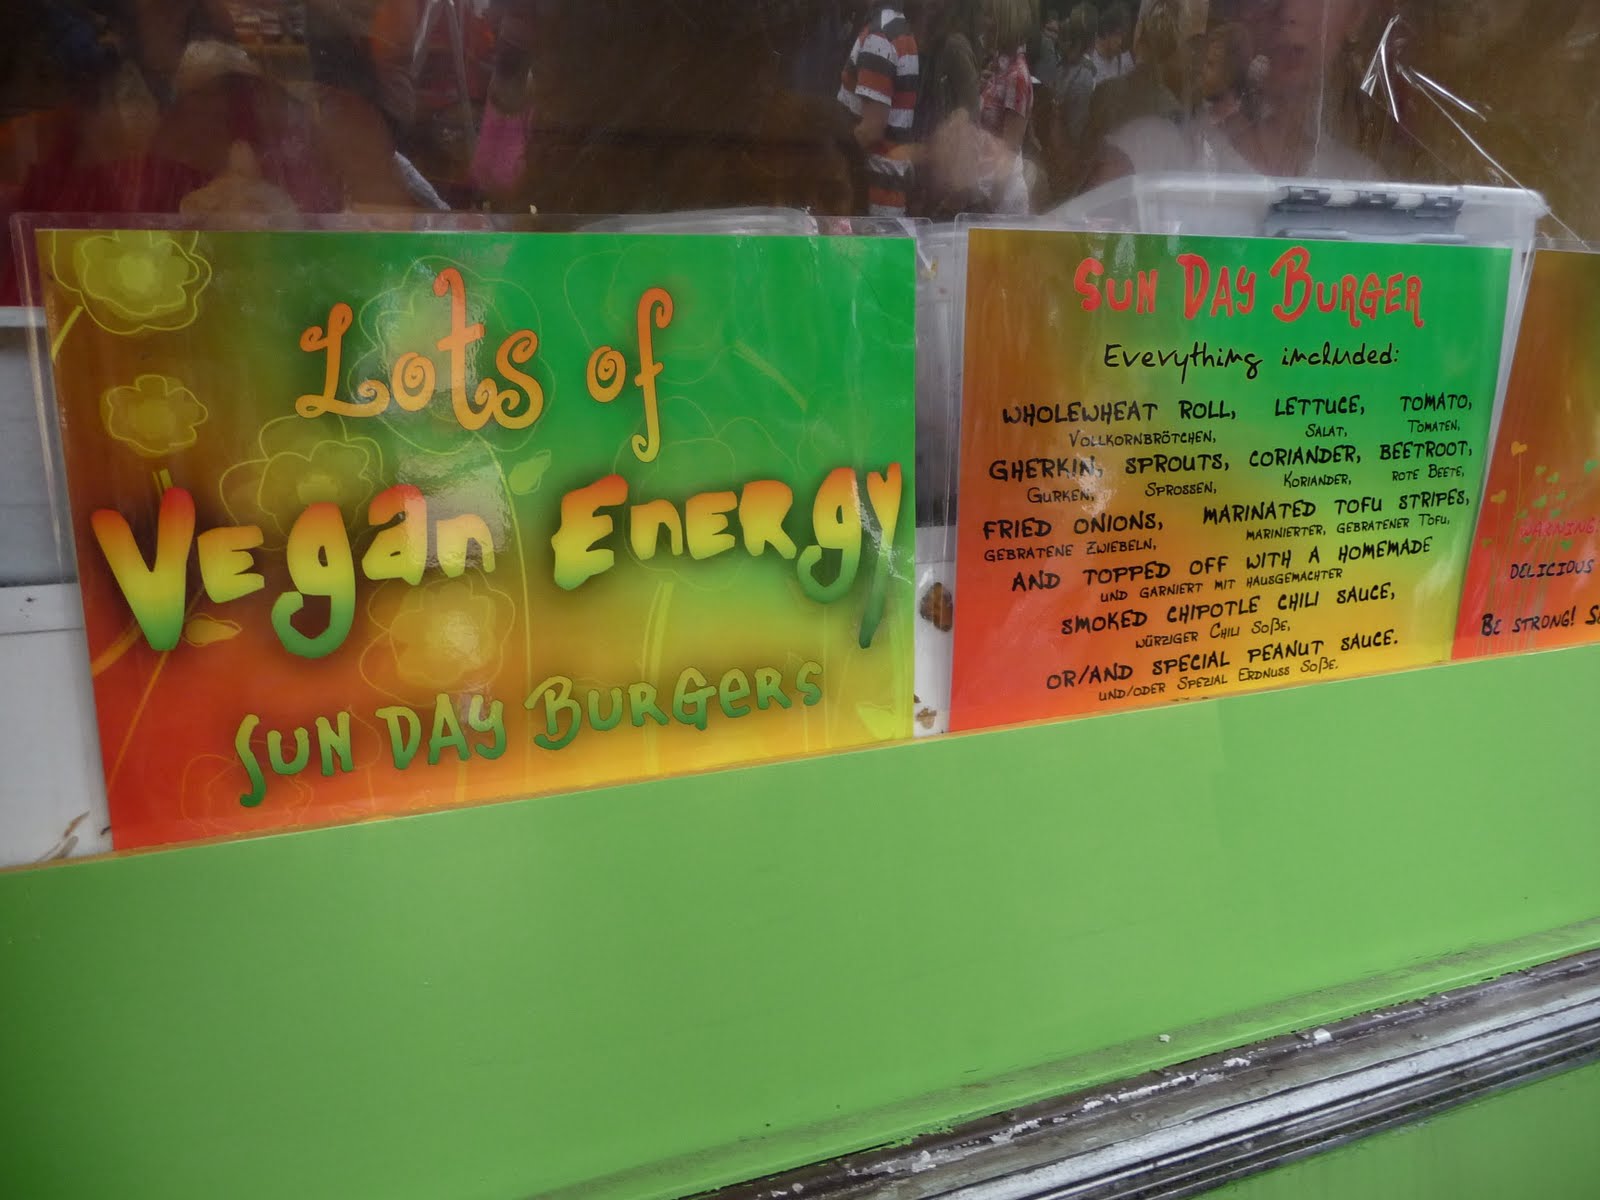 Lots of
Vegan Energy
Sun Day Burgers
Sun Day Burger
Everything included:
WHOLEWHEAT ROLL, LETTUCE, TOMATO,
VOLLKORNBRÖTCHEN, SALAT, TOMATEN,
GHERKIN, SPROUTS, CORIANDER, BEETROOT,
GURKEN, SPROSSEN, KORIANDER, ROTE BEETE,
FRIED ONIONS, MARINATED TOFU STRIPES,
GEBRATENE ZWIEBELN, MARINIERTER, GEBRATENER TOFU,
AND TOPPED OFF WITH A HOMEMADE
UND GARNIERT MIT HAUSGEMACHTER
SMOKED CHIPOTLE CHILI SAUCE,
WÜRZIGER CHILI SOßE,
OR/AND SPECIAL PEANUT SAUCE.
UND/ODER SPEZIAL ERDNUSS SOßE.
WARNING
DELICIOUS
BE STRONG!